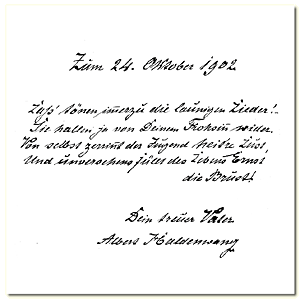 Zum 24. Oktober 1902
Laß' tönen immerzu die launigen Lieder!
Sie hallen ja von Deinem Frohsinn wider.
Von selbst zerrint der Jugend heit're Lust,
Und unversehens füllt des Lebens Ernst
die Brust!
Dein treuer Vater
Albert Haldenwang